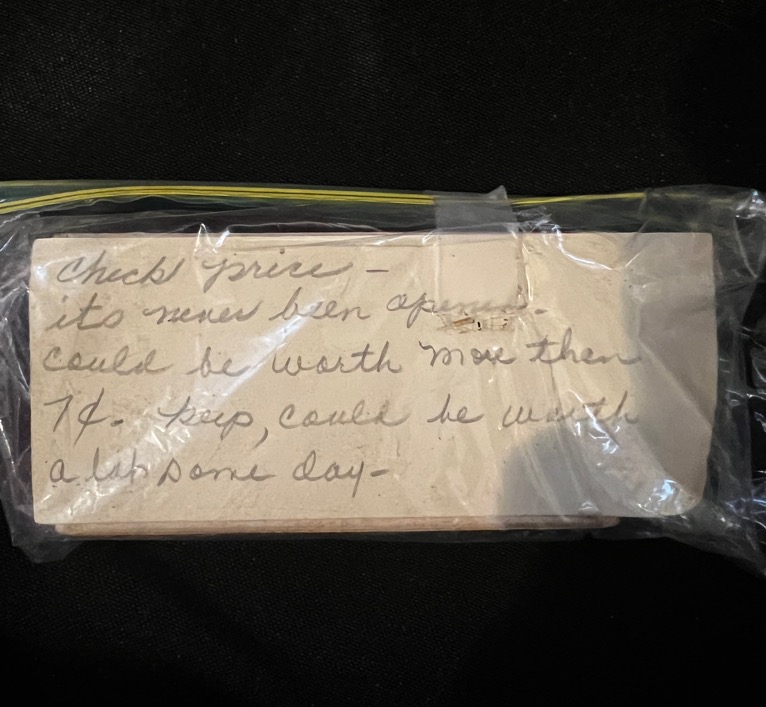 Check price -
its never been opened.
could be worth more then
7¢. keep, could be worth
a lot some day-